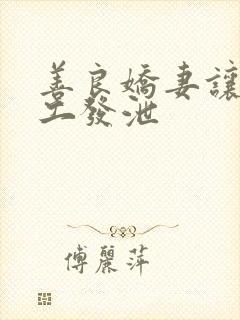 善良嬌妻讓
工發泄
傅麗萍